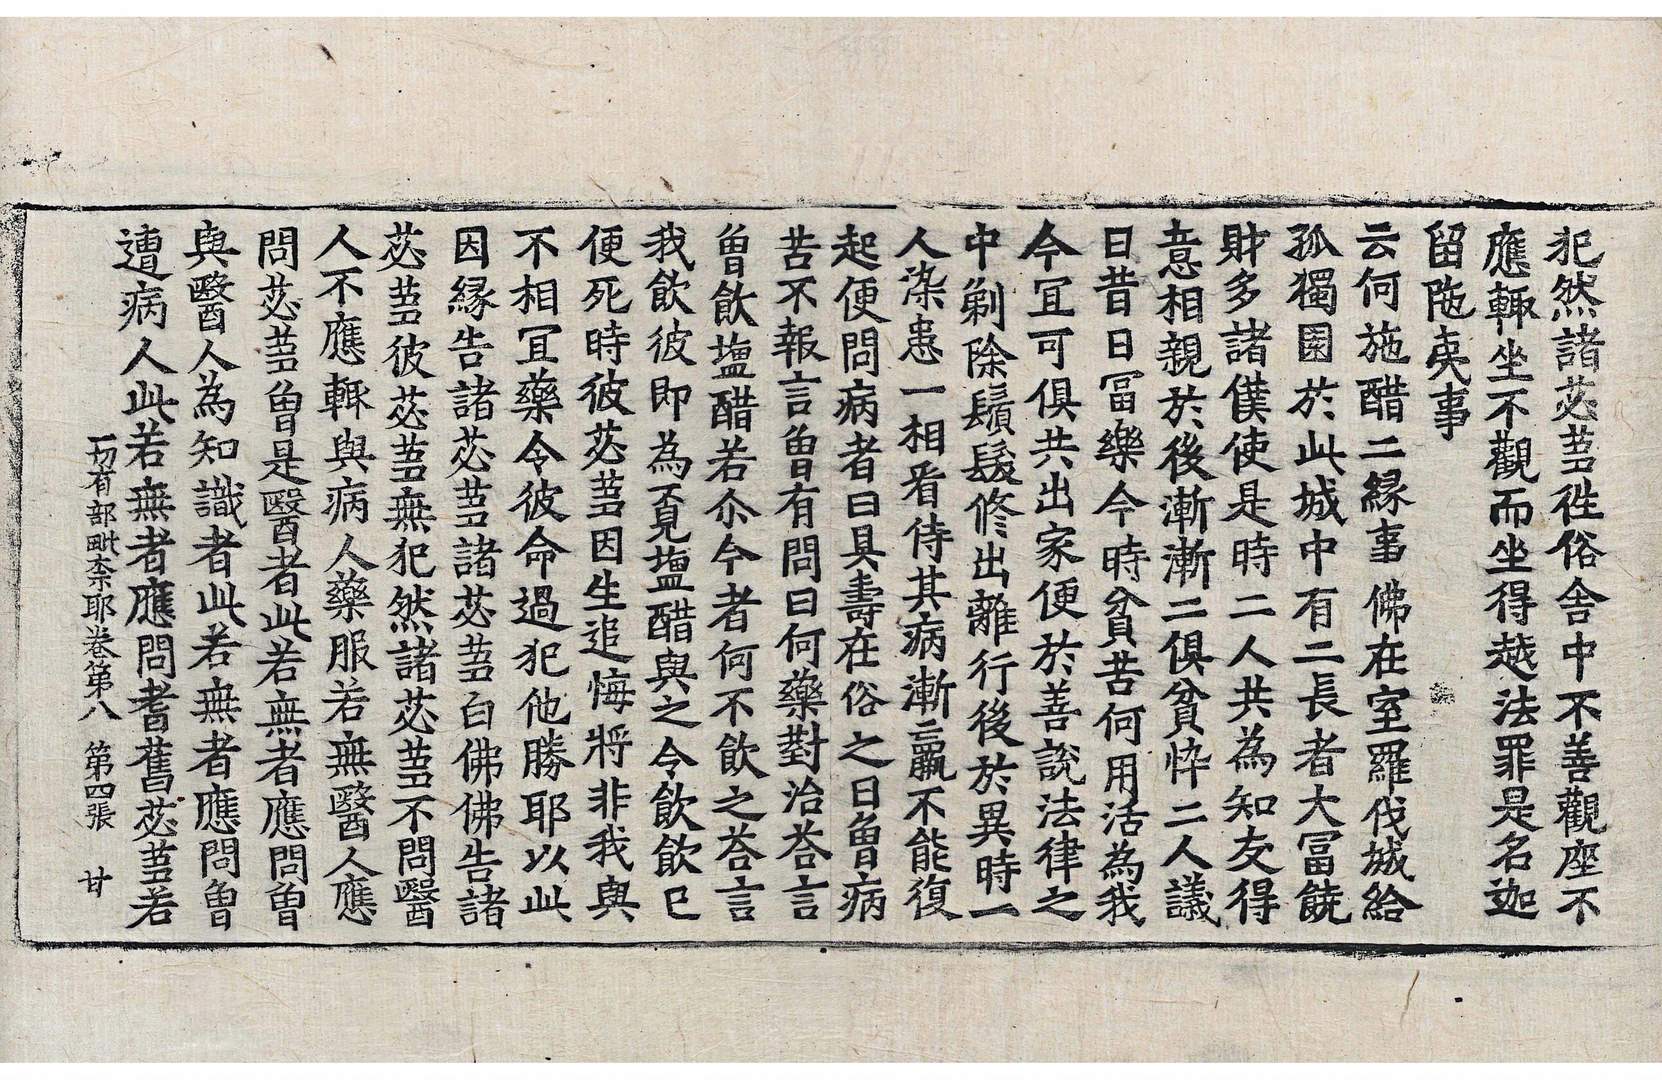 犯然諸苾蒭徃俗舎中不善觀座不
應輙坐不觀而坐得越法罪是名迦
留陁夷事
云何施醋二緣事佛在室羅伐城給
孤獨園於此城中有二長者大冨饒
財多諸僕使是時二人共為知友得
意相親於後漸漸二俱貧悴二人議
曰昔日冨樂今時貧苦何用活為我
今冝可俱共出家便於善說法律之
中剃除鬚髮修出離行後於異時一
人染患一相看侍其病漸羸不能復
起便問病者曰具壽在俗之日曾病
苦不報言曾有問曰何藥對治荅言
曾飲塩醋若尒今者何不飲之荅言
我飲彼即為覓塩醋與之令飲飲已
便死時彼苾蒭因生追悔將非我與
不相冝藥令彼命過犯他勝耶以此
因緣告諸苾蒭諸苾蒭白佛佛告諸
苾蒭彼苾蒭無犯然諸苾蒭不問醫
人不應輙與病人藥服若無醫人應
問苾蒭曾是醫者此若無者應問曾
與醫人為知識者此若無者應問曾
遭病人此若無者應問耆舊苾蒭若
一切有部毗奈耶卷第八 第四張 甘